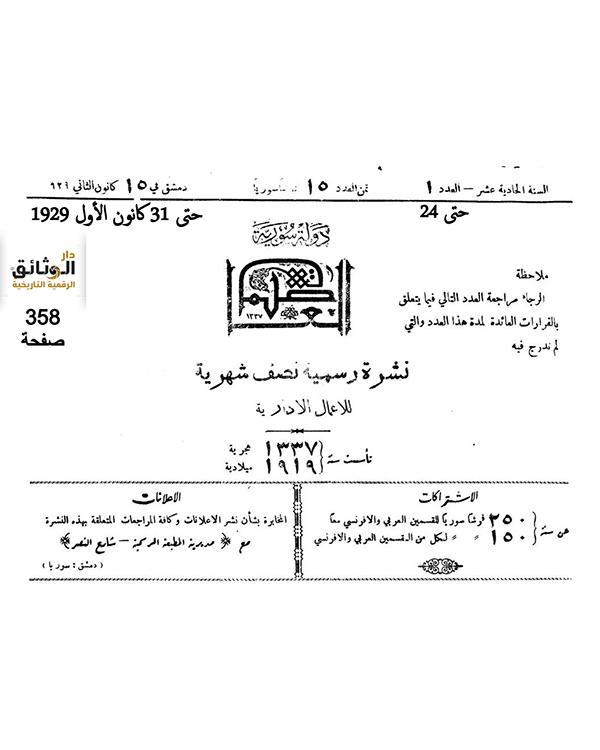 السنة الحادية عشر – العدد ١
ثمن العدد ١٥
دمشق في ١٥ كانون الثاني ٩٢٩
حتى 24
حتى 31 كانون الأول 1929
دولة سورية
العاصمة
١٣٣٧
دار
الوثائق
الرقمية التاريخية
358
صفحة
ملاحظة
الرجاء مراجعة العدد التالي فيما يتعلق
بالقرارات العائدة لمدة هذا العدد والتي
لم تدرج فيه
نشرة رسمية نصف شهرية
للاعمال الادارية
تأسست سنة
١٣٣٧ هجرية
١٩١٩ ميلادية
الاشتراكات
عن سنة
٢٥٠ قرشا سوريا للقسمين العربي والافرنسي معا
١٥٠ " " لكل من القسمين العربي والافرنسي
الاعلانات
المخابرة بشأن نشر الاعلانات وكافة المراجعات المتعلقة بهذه النشرة
مع مديرية المطبعة الرسمية – شارع النصر
( دمشق : سوريا )